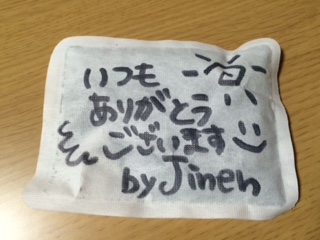 いつも
ありがとう
ございます
by Jinen